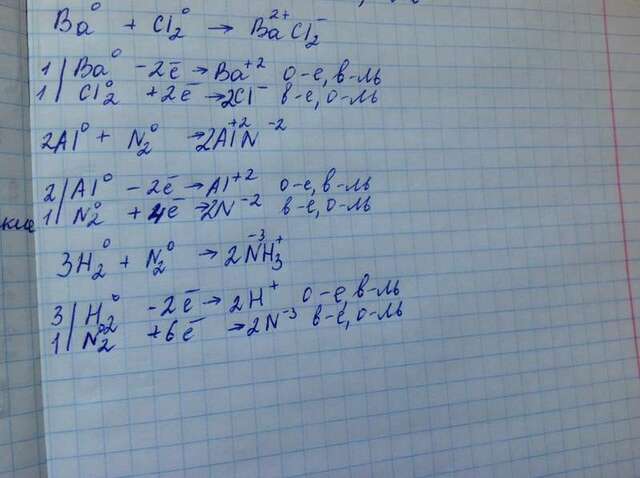 Ba⁰ + Cl₂⁰ → Ba²⁺Cl₂⁻
1 | Ba⁰ -2ē → Ba⁺² о-е, в-ль
1 | Cl₂⁰ +2ē → 2Cl⁻ в-е, о-ль
2Al⁰ + N₂⁰ → 2Al⁺²N⁻²
2 | Al⁰ -2ē → Al⁺² о-е, в-ль
1 | N₂⁰ +4ē → 2N⁻² в-е, о-ль
3H₂⁰ + N₂⁰ → 2N⁻³H₃⁺
3 | H₂⁰ -2ē → 2H⁺ о-е, в-ль
1 | N₂⁰ +6ē → 2N⁻³ в-е, о-ль